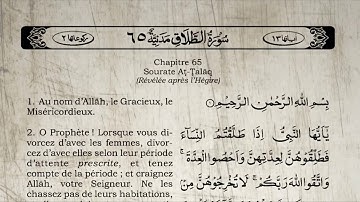 اٰیاتہا ١٣
سُوْرَةُ الطَّلَاقِ مَدَنِيَّةٌ ٦٥
رکوعاتہا ٢
Chapitre 65
Sourate Aṭ-Ṭalāq
(Révélée après l'Hégire)
1. Au nom d'Allāh, le Gracieux, le
Miséricordieux.
2. O Prophète ! Lorsque vous di-
vorcez d'avec les femmes, divor-
cez d'avec elles selon leur période
d'attente prescrite, et tenez
compte de la période ; et craignez
Allāh, votre Seigneur. Ne les
chassez pas de leurs habitations,
بِسْمِ اللّٰهِ الرَّحْمٰنِ الرَّحِيْمِ ①
يٰۤاَيُّهَا النَّبِيُّ اِذَا طَلَّقْتُمُ النِّسَآءَ
فَطَلِّقُوْهُنَّ لِعِدَّتِهِنَّ وَاَحْصُوا الْعِدَّةَ ۚ
وَاتَّقُوا اللّٰهَ رَبَّكُمْ ۚ لَا تُخْرِجُوْهُنَّ مِنْۢ